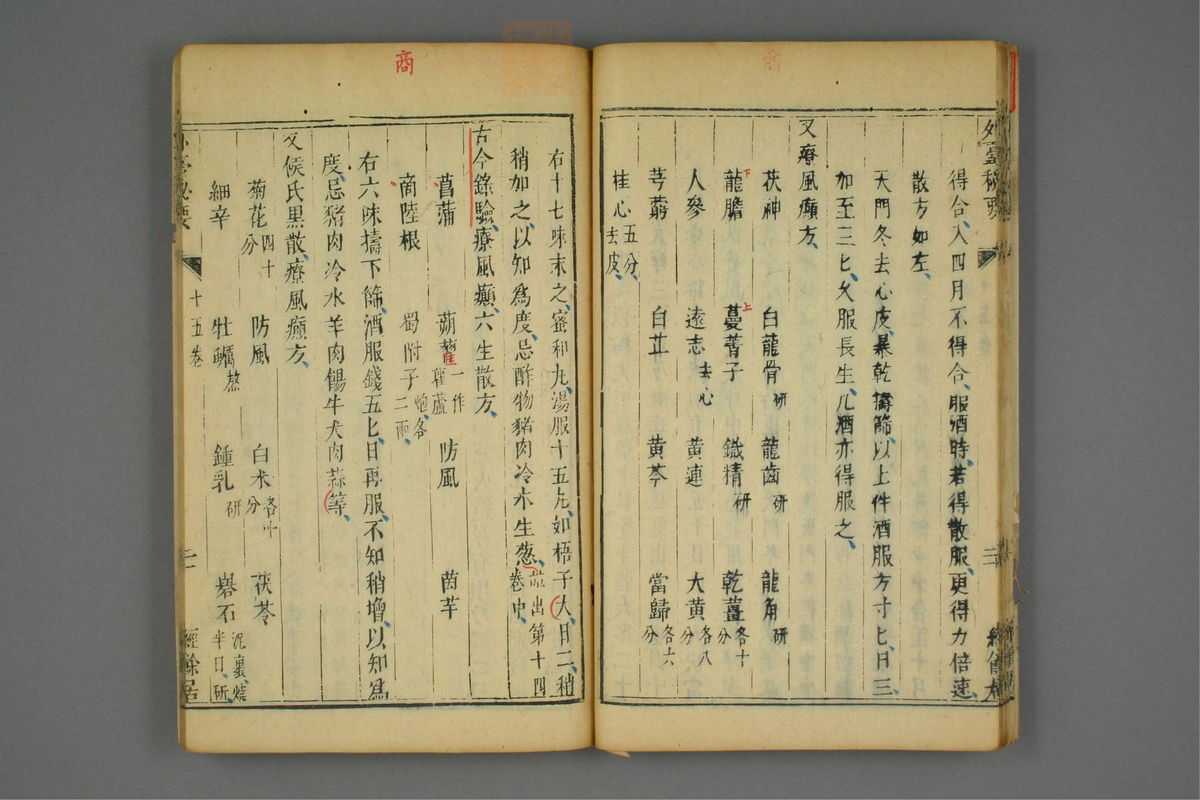 得合入四月不得合、服酒時、若得散服、更得力倍速、
散方如左、
天門冬去心皮、暴乾擣篩、以上件酒服方寸匕、日三、
加至三匕、久服長生、凡酒亦得服之、
又療風癲方、
茯神 白龍骨研 龍齒研 龍角研
龍膽 蔓菁子 鐵精研 乾薑各十分
人參 遠志去心 黃連 大黃各八分
芎藭 白芷 黃芩 當歸各六分
桂心五分、去皮、
右十七味末之、蜜和丸、湯服十五丸、如梧子大、日二、稍
稍加之、以知爲度、忌酢物豬肉冷水生葱、出第十四卷中、
古今錄驗、療風癲、六生散方、
菖蒲 蒴藋一作藋蘆 防風 茵芋
商陸根 蜀附子二兩、炮、各
右六味擣下篩、酒服錢五匕、日再服、不知稍增、以知爲
度、忌豬肉冷水羊肉餳牛犬肉蒜等、
又侯氏黑散、療風癲方、
菊花四十分 防風 白朮各十分 茯苓
細辛 牡蠣熬 鍾乳研 礜石泥裹燒半日、研、
十五卷
二
經餘居
商
下
上